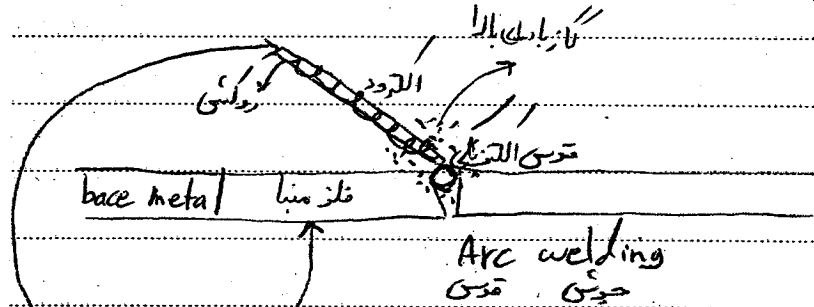 گاز با دمای بالا
الکترود
روکش
قوس الکتریکی
bace metal فلز مبنا
Arc welding
جوش قوسی